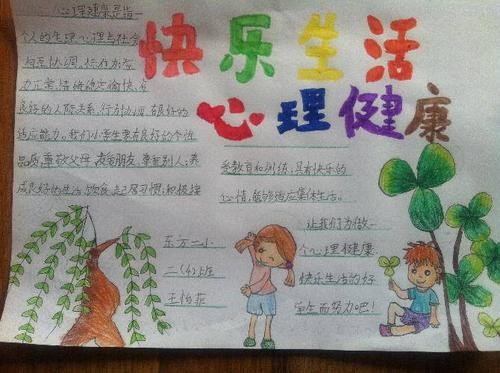 快乐生活
心理健康
心理健康是指一
个人的生理、心理与社会
相互协调
良好的人际关系,行为协调,有良好的
适应能力。我们小学生要有良好的个性
品质,尊敬父母,友爱朋友,尊重别人;养
成良好的生活、饮食、起居习惯;积极接
受教育和训练,具有快乐的
心情,能够适应集体生活。
让我们为做一
个心理健康
快乐生活的好
学生而努力吧!
东方二小
二(4)班